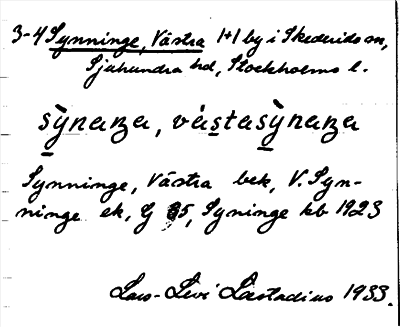 3-4 Synninge, Västra 1+1 by i Skederids sn,
Sjuhundra hd, Stockholms l.
sỳnaŋa, vástasỳnaŋa
Synninge, Västra bek, V. Syn-
ninge ek, G 35, Syninge kb 1923
Lars-Levi Læstadius 1933.